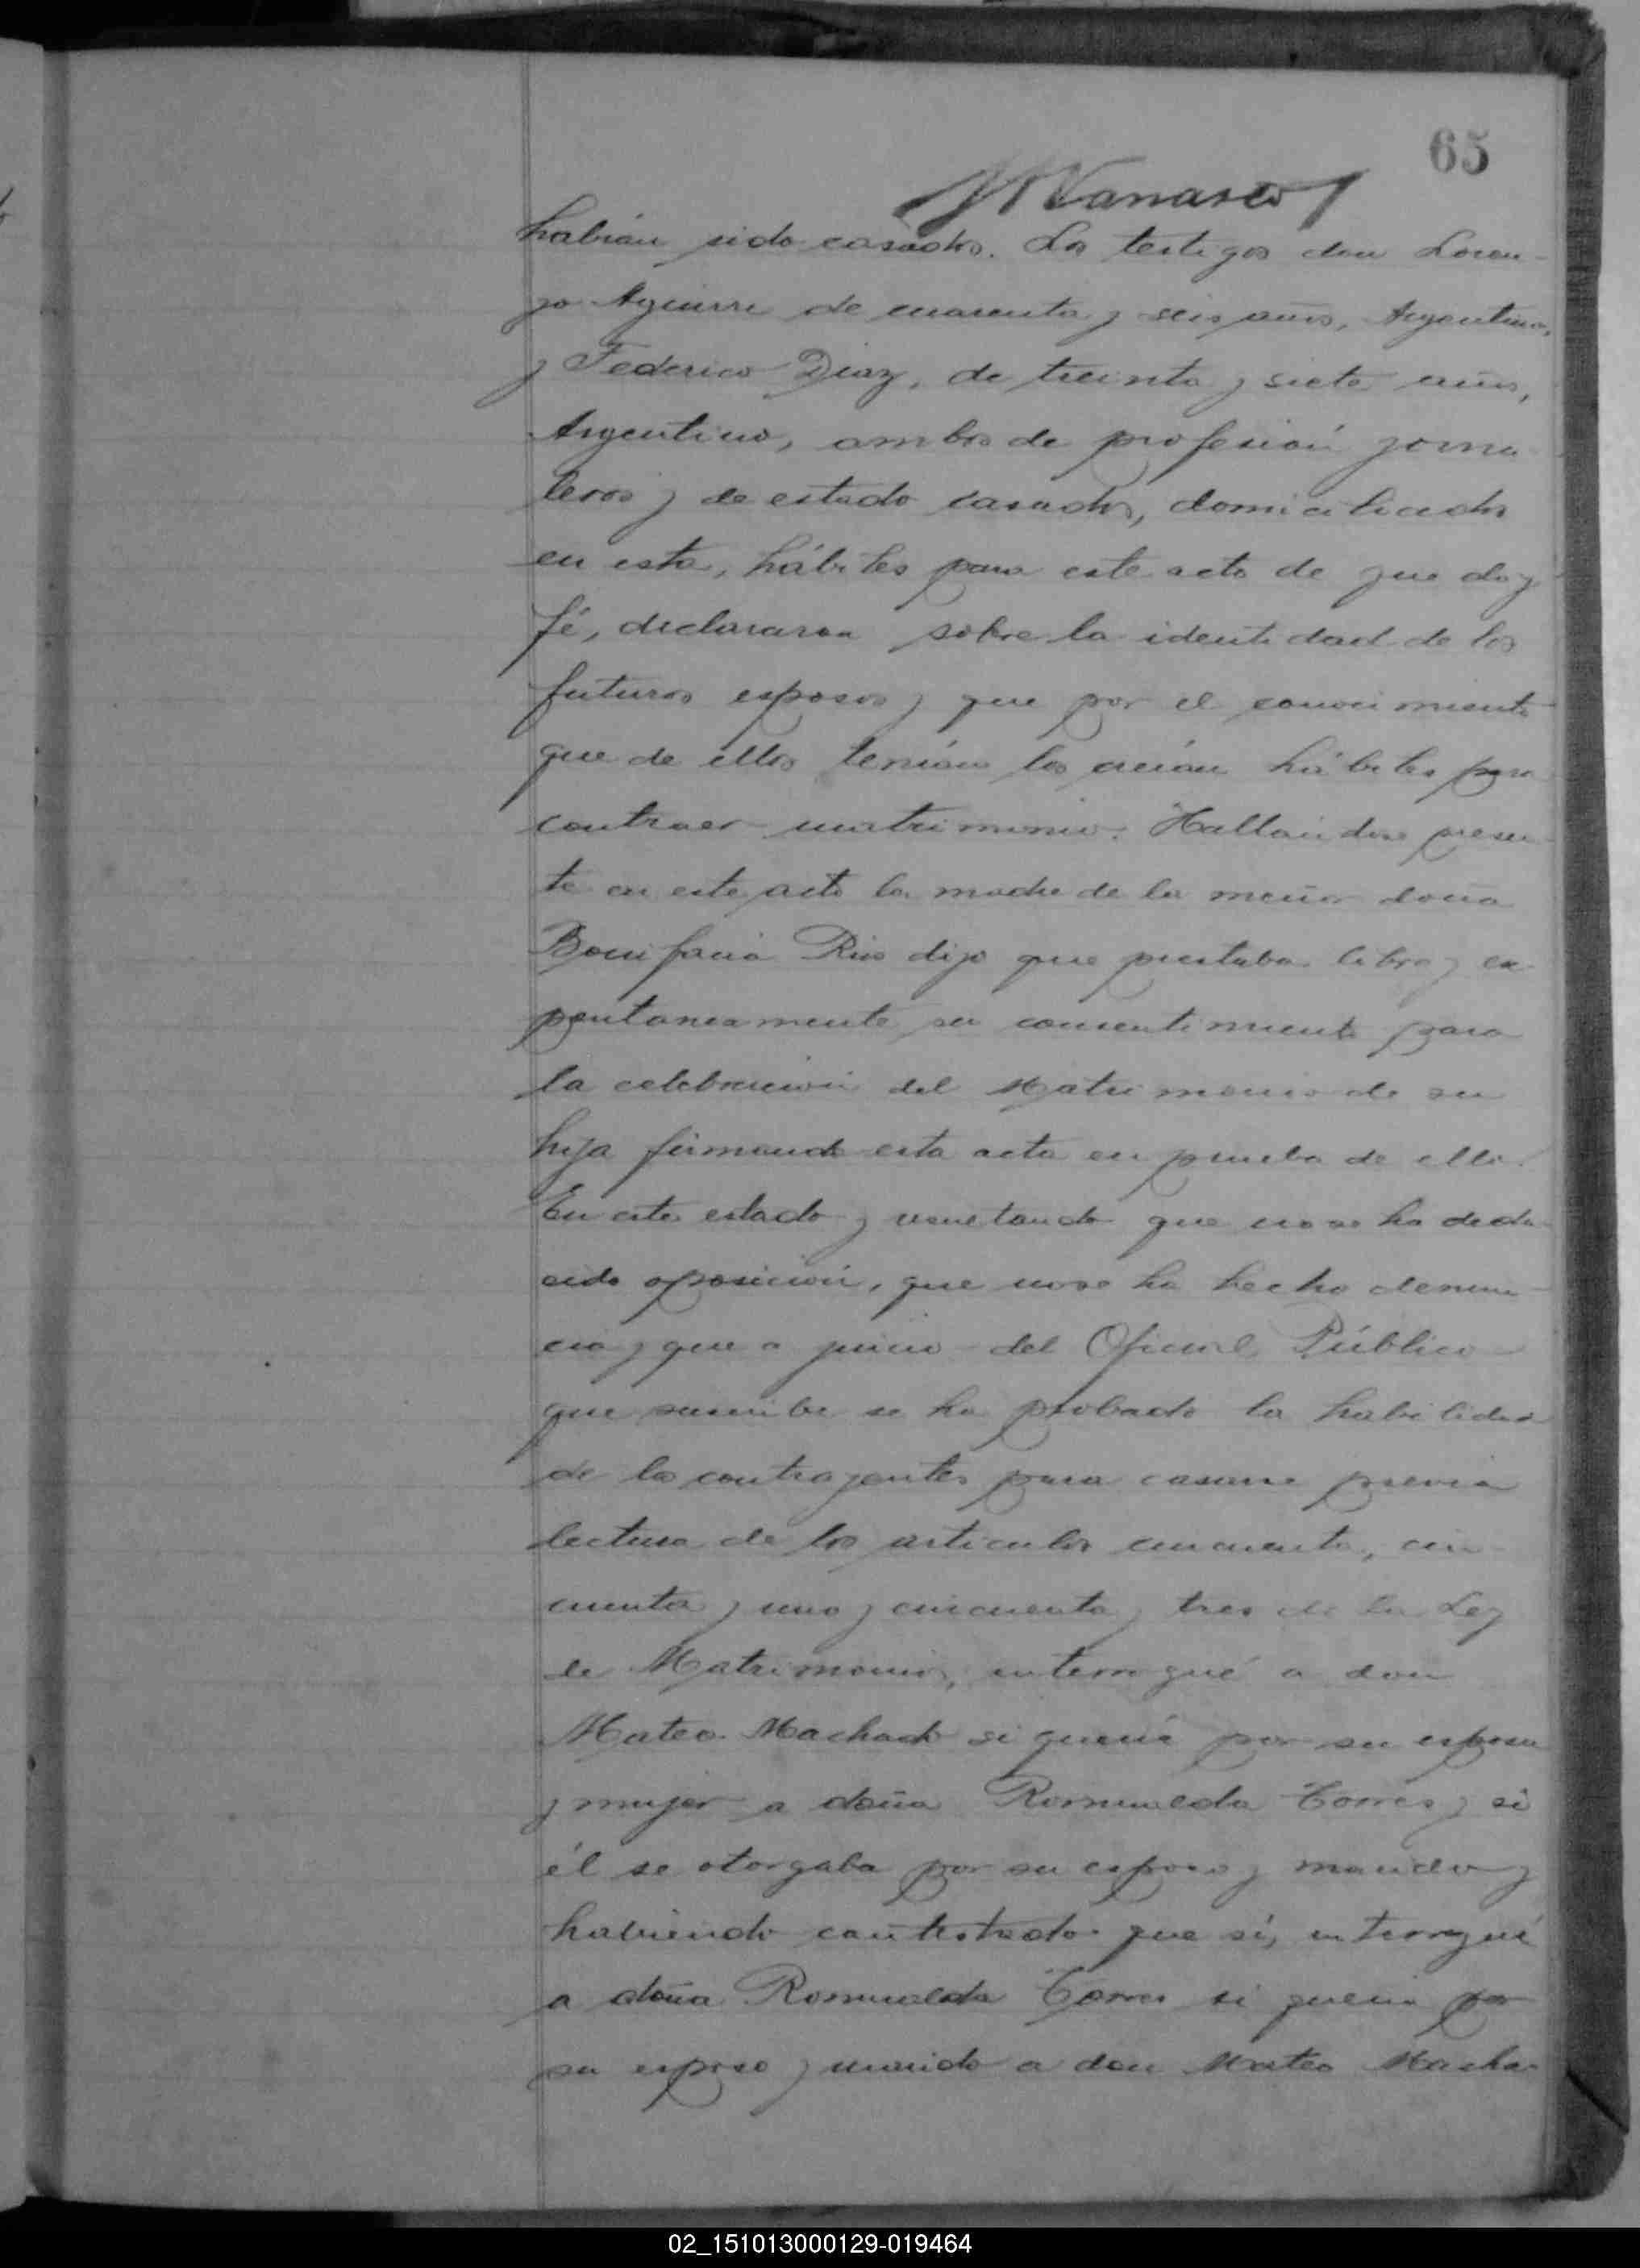 65
habían sido casados. Los testigos don Loren-
zo Aguirre de cuarenta y seis años, Argentino,
y Federico Diaz, de treinta y siete años,
Argentino, ambos de profesión jorna
leros y de estado casados, domiciliados
en esta, hábiles para este acto de que doy
fé, declararon sobre la identidad de los
futuros esposos y que por el conocimiento
que de ellos tenían los creían hábiles para
contraer matrimonio. Hallándose presen
te en este acto la madre de la menor doña
Bonifacia Rios dijo que prestaba libre y es
pontaneamente su consentimiento para
la celebración del Matrimonio de su
hija firmando esta acta en prueba de ello.
En este estado y resultando que no se ha dedu
cido oposición, que no se ha hecho denun-
cia y que a juicio del Oficial Público
que suscribe se ha probado la habilidad
de los contrayentes para casarse previa
lectura de los articulos cincuenta, cin-
cuenta y uno y cincuenta y tres de la Ley
de Matrimonio, interrogué a don
Mateo Machado si quería por su esposa
y mujer a doña Romualda Torres y si
él se otorgaba por su esposo y marido y
habiendo contestado que sí, interrogué
a doña Romualda Torres si quería por
su esposo y marido a don Mateo Macha-
02_151013000129-019464